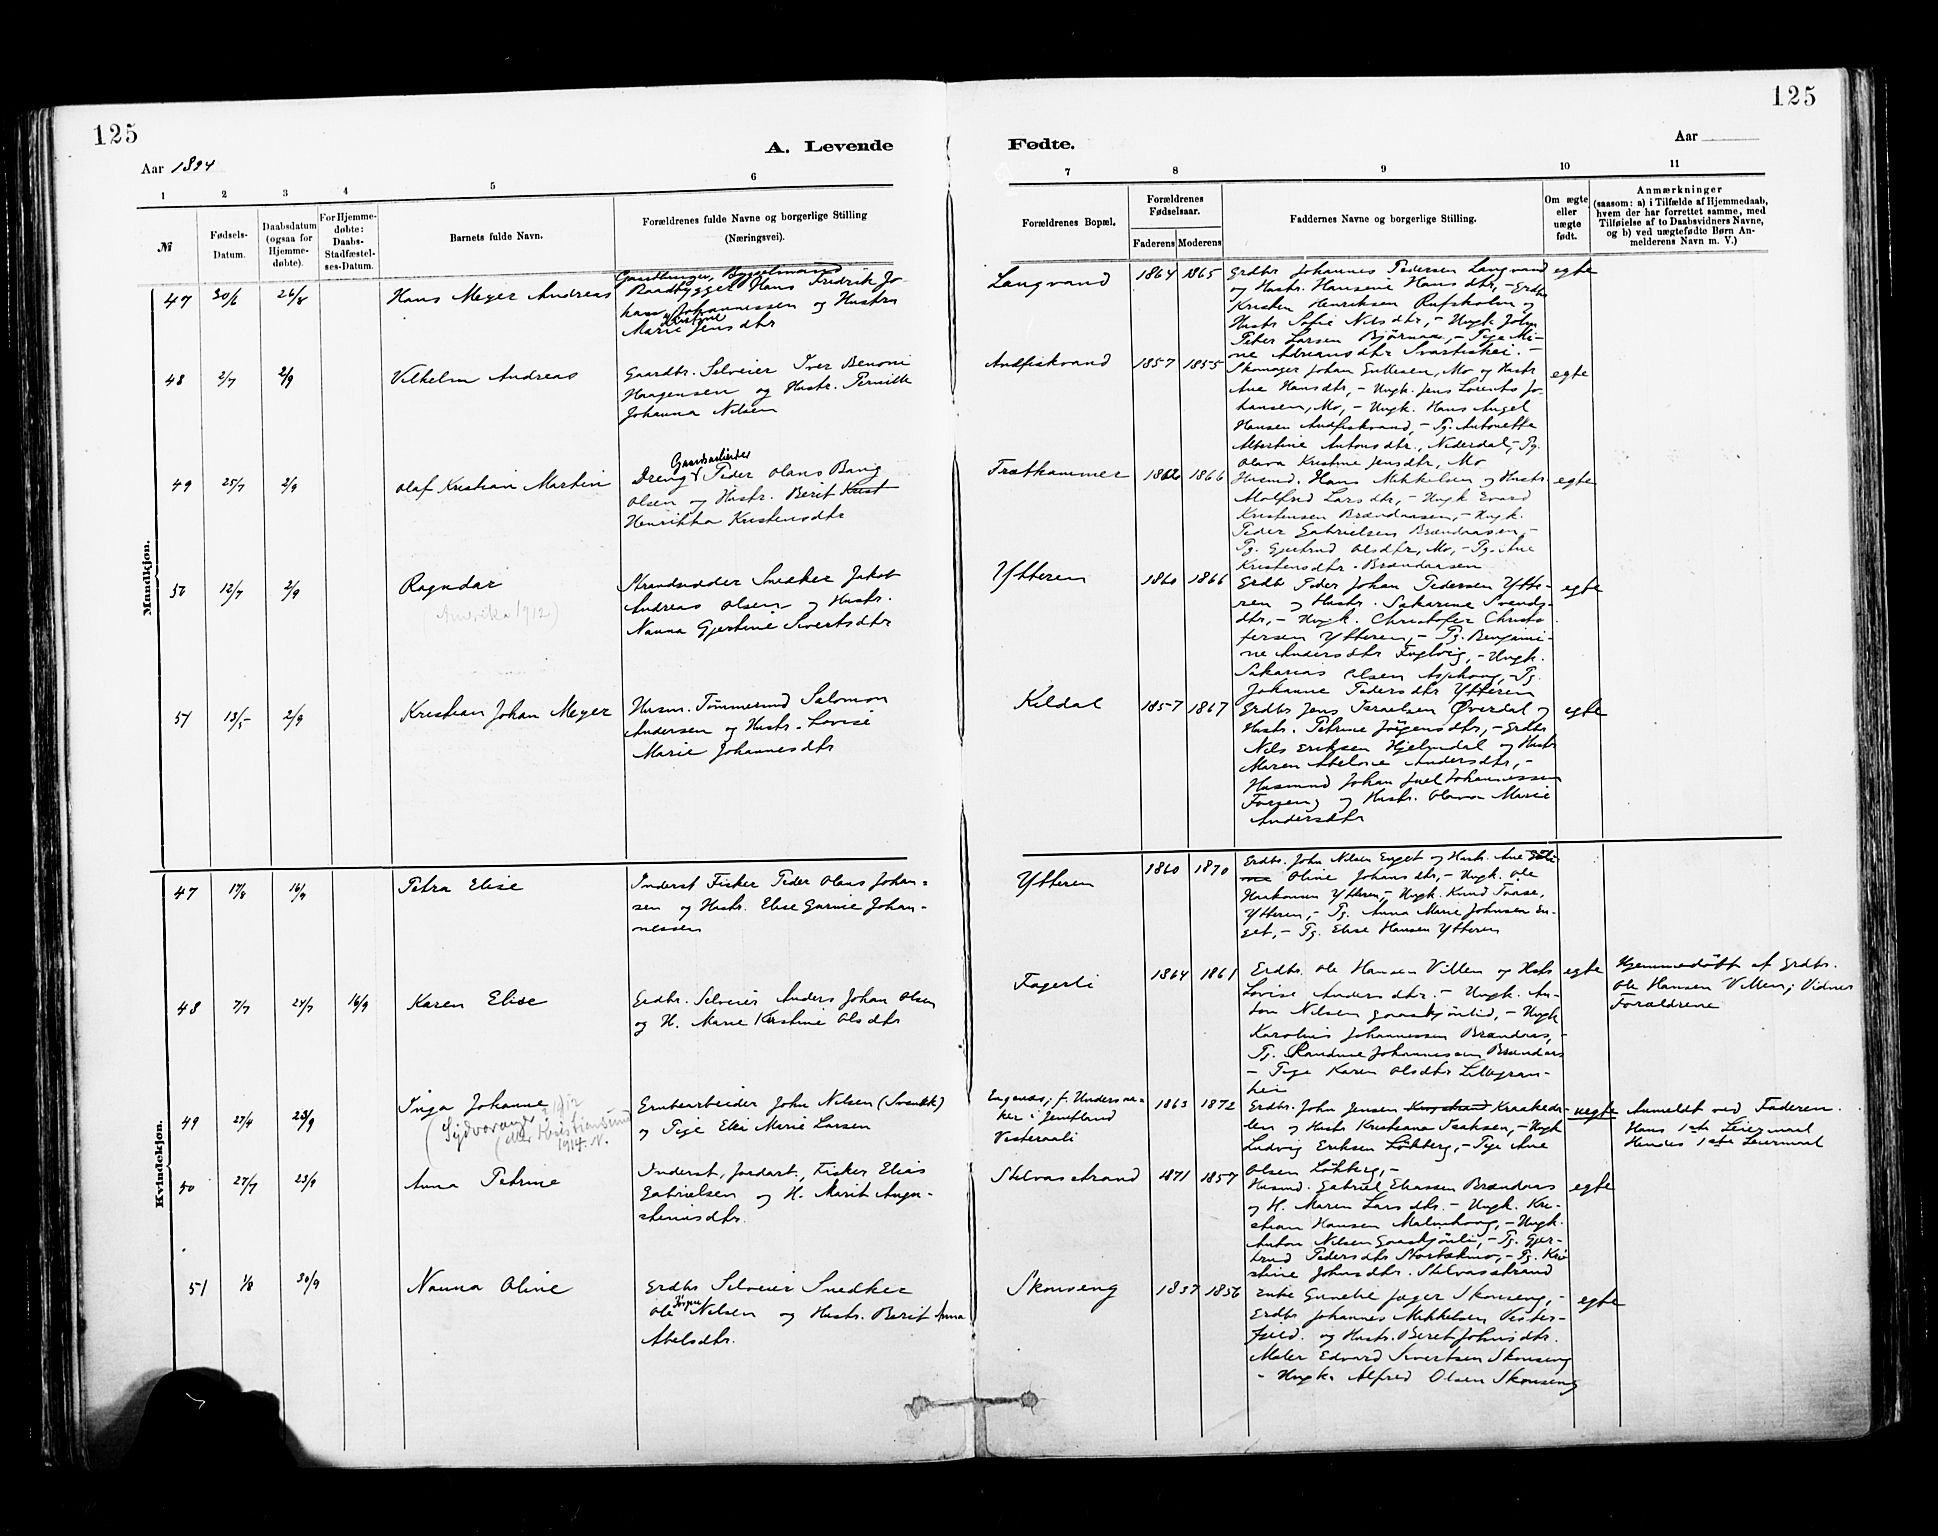 125
125
A. Levende
Fødte.
Aar 1894
Aar
1 2 3 4 5 6
7 8 9 10 11
№
Fødsels-
Datum.
Daabsdatum
(ogsaa for
Hjemme-
døbte).
For Hjemme-
døbte:
Daabs-
Stadfæstel-
ses-Datum.
Barnets fulde Navn.
Forældrenes fulde Navne og borgerlige Stilling
(Næringsvei).
Forældrenes Bopæl.
Forældrenes
Fødselsaar.
Faderens Moderens
Faddernes Navne og borgerlige Stilling.
Om ægte
eller
uægte
født.
Anmærkninger
(saasom: a) i Tilfælde af Hjemmedaab,
hvem der har forrettet samme, med
Tilføielse af to Daabsvidners Navne,
og b) ved uægtefødte Børn An-
melderens Navn m. V.)
Mandkjøn.
47 30/6 26/8
Hans Meyer Andreas
Baadbygger Hans Fredrik Jo
han Johannessen og Hustru
Kristine
Marie Jensdtr
Langvand
1864 1865
Erdbr Johannes Pedersen Langvand
og Hustr. Hansine Hansdtr, - Erdbr
Kristen Henriksen Rufsholm og
Hustr Sofie Nilsdtr, - Ungk John
Peter Larsen Bjørnaa, - Pige Mi-
ne Adriansdtr Svartishei. -
egte
48 2/7 2/9
Vilhelm Andreas
Gaardbr. Selveier Iver Benoni
Haagensen og Hustr. Pernille
Johanna Nilsen
Andfiskvand
1857 1855
Skomager Johan Entesen, Mo og Hustr
Ane Hansdtr, - Ungk. Jens Lorents Jo-
hansen, Mo, - Ungk. Hans Angel
Hansen Andfiskvand, - Pg. Antonette
Albertine Antonsdtr, Nederdal, - Pg.
Olava Kristine Jensdtr, Mo
egte
49 25/7 2/9
Olaf Kristian Martin
Gaardsarbeider
Dreng Peder Olaus Bang
Olsen og Hustr. Berit Krist
Henrikka Kristensdtr
Træthammer
1862 1866
Husmd. Hans Mikkelsen og Hustr
Molfrid Larsdtr, - Ungk Evard
Kristensen Brændaasen, - Ungk.
Peder Gabrielsen Brændaasen, -
Pg. Gjertrud Olsdtr, Mo, - Pg. Ane
Kristensdtr. Brændaasen
egte
50 12/7 2/9
Ragndar
(Amerika 1912)
Strandsidder Snedker Jakob
Andreas Olsen og Hustr.
Nanna Gjertine Sivertsdtr
Ytteren
1860 1866
Erdbr Peder Johan Pedersen Ytte-
ren og Hustr. Sakarine Svends-
dtr, - Ungk. Christofer Christo
fersen Ytteren, - Pg. Benjami-
ne Andersdtr Fuglvig, - Ungk.
Sakarias Olsen Asphaug, - Pg.
Johanne Pedersdtr Ytteren
egte
51 13/5 2/9
Kristian Johan Meyer
Husm. Tømmermd Salomon
Andersen og Hustr. Lovise
Marie Johannesdtr
Kildal
1857 1867
Erdbr Jens Israelsen Øverdal og
Hustr. Petrine Jørgensdtr, - Erdbr
Nils Eriksen Hjelmdal og Hustr
Maren Abelone Andersdtr, -
Husmand Johan Juel Johannessen
Forseng og Hustr. Olava Marie
Andersdtr
egte
Kvindekjøn.
47 17/8 16/9
Petra Elise
Inderst Fisker Peder Olaus Johan-
sen og Hustr. Elise Gurine Johan-
nessen
Ytteren
1860 1870
Erdbr. John Nilsen Enget og Hustr. Ane
Oline Johansdtr, - Ungk. Ole
Haakonsen Ytteren, - Ungk. Knud Traase,
Ytteren, - Pg. Anna Marie Johnsen En-
get, - Pg. Elise Hansen Ytteren
48 7/7 24/7 16/9
Karen Elise
Erdbr. Selveier Anders Johan Olsen
og H. Marie Kristine Olsdtr
Fagerli
1864 1861
Erdbr. Ole Hansen Villen og Hustr
Lovise Andersdtr. - Ungk. An-
ton Nilsen Gaaskjønlid, - Ungk
Karolius Johannessen Brændaas, -
Pg. Randine Johannessen Brændaas
- Pige Karen Olsdtr Lillegran-
hei
egte
Hjemmedøbt af Erdbr.
Ole Hansen Villen; Vidner
Forældrene
49 27/4 23/9
Inga Johanne
(Sydvaranger
(eller Kristiansund
1914. N.
Grubearbeider John Nilsen (Svensk)
og Pige Elen Marie Larsen
Engenæs; f. Undersaa-
ker i Jemtland
Vesteraali
1863 1872
Erdbr. John Jensen Kraakeda-
len og Hustr Kristiana Isaksen, - Ungk
Ludvig Eriksen Løkberg, - Pige Ane
Olsen Løkberg, -
uegte
Anmeldt ved Faderen.
Hans 1ste Leiermaal
Hendes 1ste Leiermaal
50 27/7 23/9
Anna Petrine
Inderst, Jordarb., Fisker Elias
Gabrielsen og H. Marit Augu-
stinusdtr.
Stelvasstrand
1871 1857
Husmd. Gabriel Eliassen Brændaas
og H. Maren Larsdtr. - Ungk. Kri-
stian Hansen Malmhaug, - Ungk.
Anton Nilsen Gaaskjønli, - Pg. Gjer-
trud Pedersdtr Nortækmo, - Pg. Kri
stine Johnsdtr. Stelvasstrand
egte
51 1/8 30/9
Nanna Oline
Erdbr Selveier Snedker
Ole Nilsen og Hustr. Berit Anna
Abelsdtr.
Skonseng
1857 1856
Enke Gunelie Jæger Skonseng, -
Erdbr Johannes Mikkelsen Vester-
fjeld. og Hustr. Beret Johnsdtr.
Maler Edvard Sivertsen Skonseng
- Ungk. Alfred Olsen Skonseng
egte